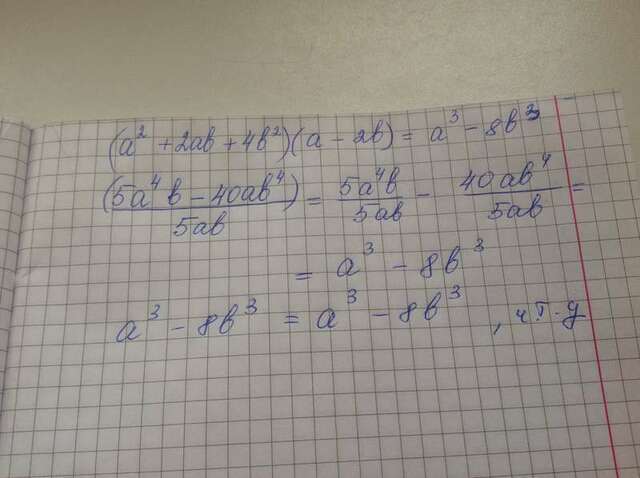 (a² + 2ab + 4b²)(a - 2b) = a³ - 8b³
(5a⁴b - 40ab⁴)/5ab = 5a⁴b/5ab - 40ab⁴/5ab =
= a³ - 8b³
a³ - 8b³ = a³ - 8b³, ч.т.д